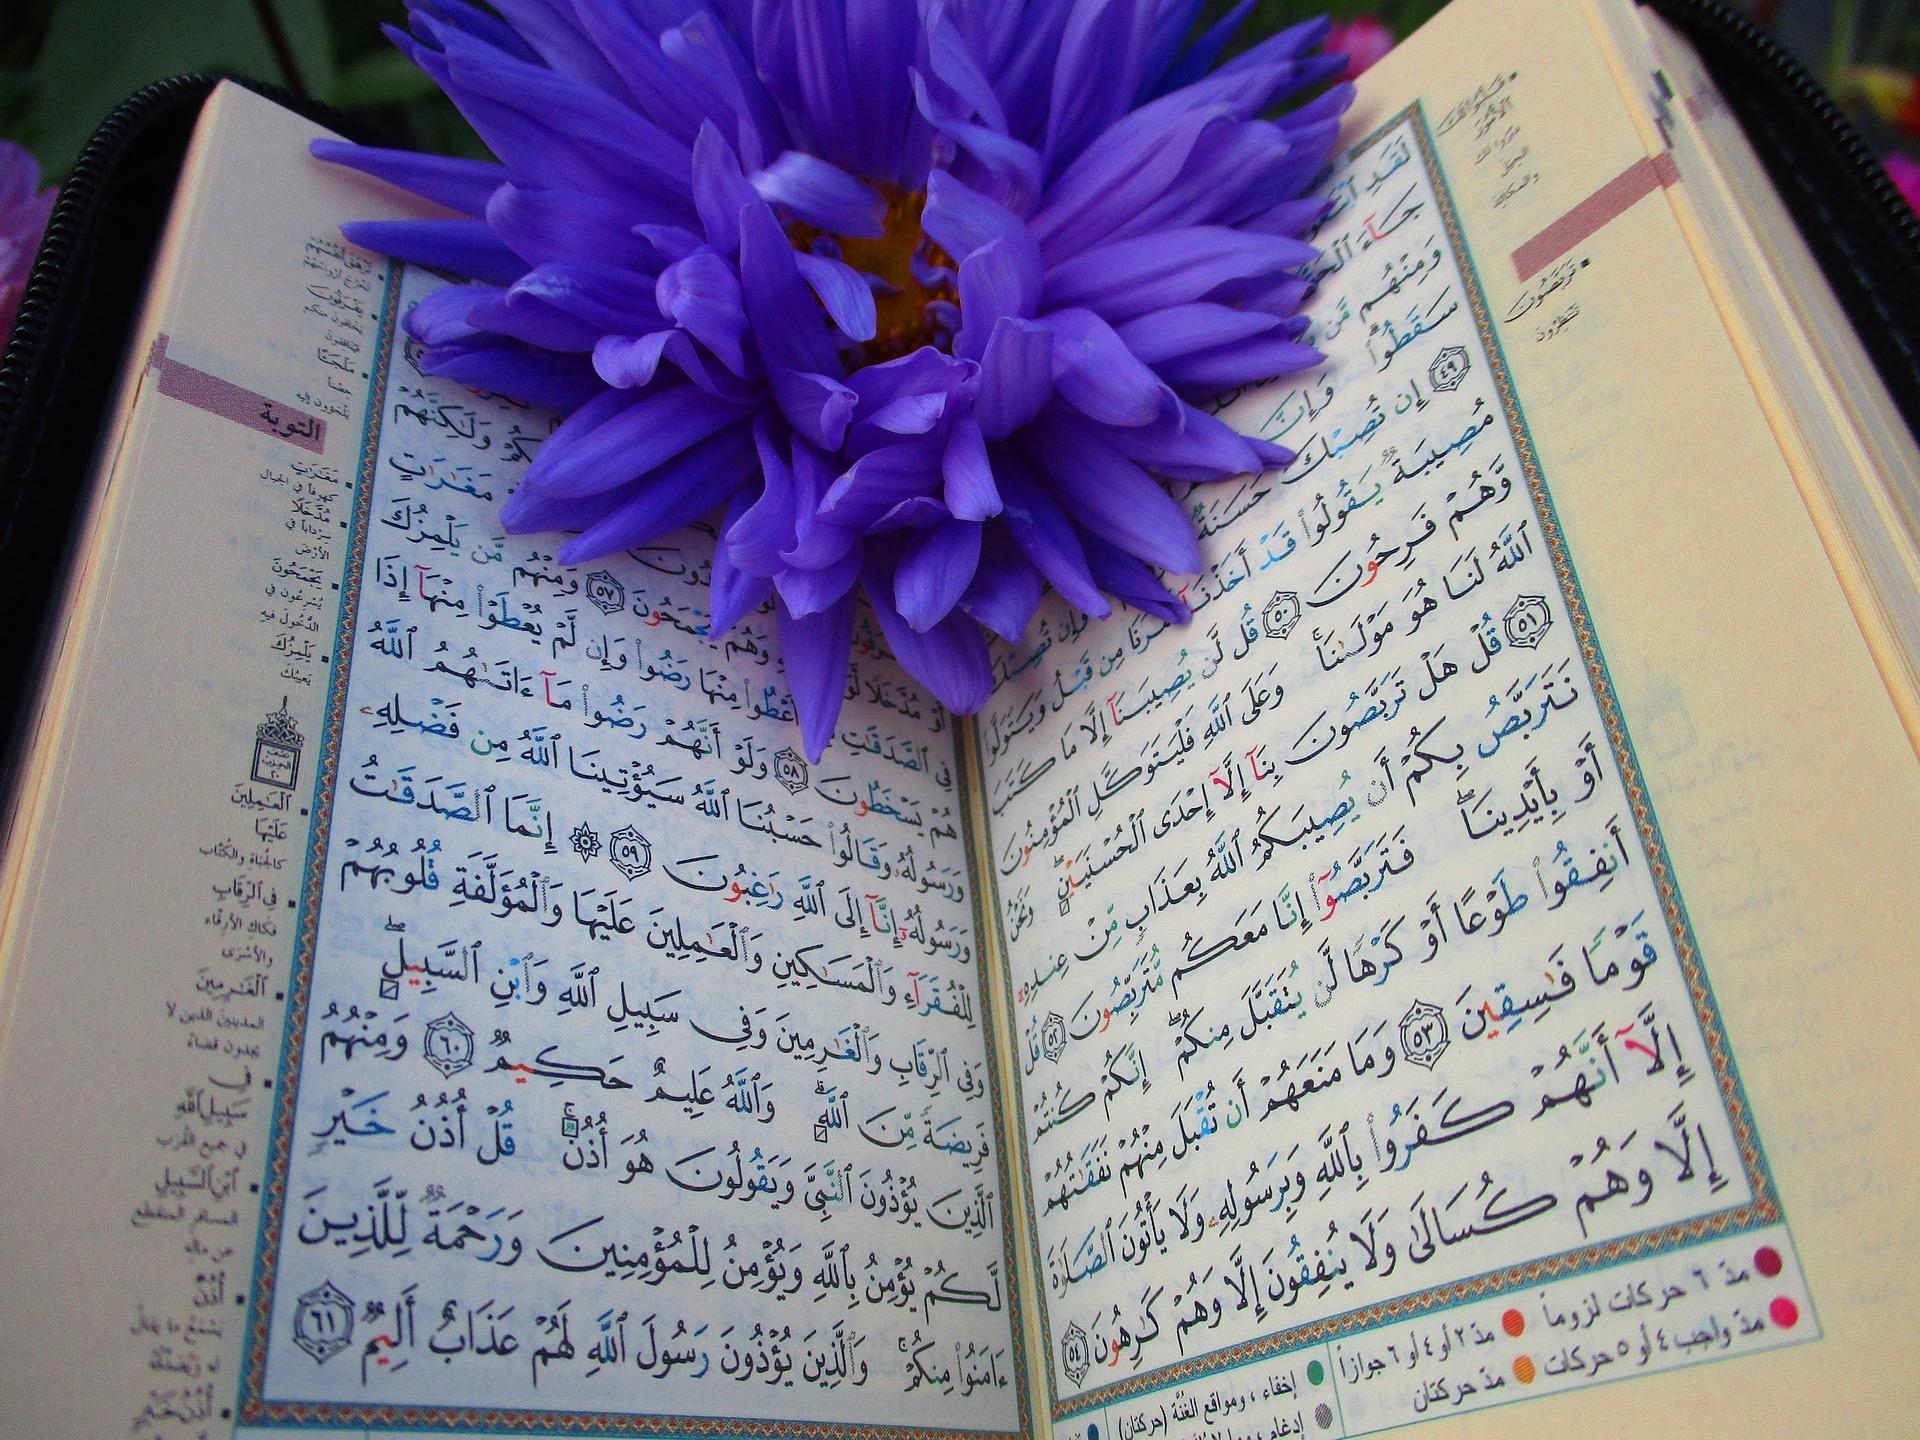 لَقَدِ
جَآءَ ٱلْحَقُّ
وَمِنْهُم مَّن
سَقَطُوا۟ وَإِنَّ
٤٩ إِن تُصِبْكَ حَسَنَةٌ وَإِن تُصِبْكَ
مُصِيبَةٌ يَقُولُوا۟ قَدْ أَخَذْنَآ أَمْرَنَا مِن قَبْلُ وَيَتَوَلَّوا۟
وَّهُمْ فَرِحُونَ ٥٠ قُل لَّن يُصِيبَنَآ إِلَّا مَا كَتَبَ
ٱللَّهُ لَنَا هُوَ مَوْلَىٰنَا ۚ وَعَلَى ٱللَّهِ فَلْيَتَوَكَّلِ ٱلْمُؤْمِنُونَ
٥١ قُلْ هَلْ تَرَبَّصُونَ بِنَآ إِلَّآ إِحْدَى ٱلْحُسْنَيَيْنِ ۖ وَنَحْنُ
نَتَرَبَّصُ بِكُمْ أَن يُصِيبَكُمُ ٱللَّهُ بِعَذَابٍ مِّنْ عِندِهِۦٓ
أَوْ بِأَيْدِينَا ۖ فَتَرَبَّصُوٓا۟ إِنَّا مَعَكُم مُّتَرَبِّصُونَ ٥٢ قُلْ
أَنفِقُوا۟ طَوْعًا أَوْ كَرْهًا لَّن يُتَقَبَّلَ مِنكُمْ ۖ إِنَّكُمْ كُنتُمْ
قَوْمًا فَٰسِقِينَ ٥٣ وَمَا مَنَعَهُمْ أَن تُقْبَلَ مِنْهُمْ نَفَقَٰتُهُمْ
إِلَّآ أَنَّهُمْ كَفَرُوا۟ بِٱللَّهِ وَبِرَسُولِهِۦ وَلَا يَأْتُونَ ٱلصَّلَوٰةَ
إِلَّا وَهُمْ كُسَالَىٰ وَلَا يُنفِقُونَ إِلَّا وَهُمْ كَٰرِهُونَ ٥٤
تَرَبَّصُونَ
تَنتَظِرُونَ
مدّ ٦ حركات لزوماً مدّ ٢ أو ٤ أو ٦ جوازاً
مدّ واجب ٤ أو ٥ حركات مدّ حركتان
إخفاء، ومواقع الغنّة (حركتان)
وَلَٰكِنَّهُمْ
مَغَٰرَٰتٍ
أَوْ مُدَّخَلًا وَهُمْ يَجْمَحُونَ ٥٧ وَمِنْهُم مَّن يَلْمِزُكَ
فِى ٱلصَّدَقَٰتِ أُعْطُوا۟ مِنْهَا رَضُوا۟ وَإِن لَّمْ يُعْطَوْا۟ مِنْهَآ إِذَا
هُمْ يَسْخَطُونَ ٥٨ وَلَوْ أَنَّهُمْ رَضُوا۟ مَآ ءَاتَىٰهُمُ ٱللَّهُ
وَرَسُولُهُۥ وَقَالُوا۟ حَسْبُنَا ٱللَّهُ سَيُؤْتِينَا ٱللَّهُ مِن فَضْلِهِۦ
وَرَسُولُهُۥٓ إِنَّآ إِلَى ٱللَّهِ رَٰغِبُونَ ٥٩ ۞ إِنَّمَا ٱلصَّدَقَٰتُ
لِلْفُقَرَآءِ وَٱلْمَسَٰكِينِ وَٱلْعَٰمِلِينَ عَلَيْهَا وَٱلْمُؤَلَّفَةِ قُلُوبُهُمْ
وَفِى ٱلرِّقَابِ وَٱلْغَٰرِمِينَ وَفِى سَبِيلِ ٱللَّهِ وَٱبْنِ ٱلسَّبِيلِ ۖ
فَرِيضَةً مِّنَ ٱللَّهِ ۗ وَٱللَّهُ عَلِيمٌ حَكِيمٌ ٦٠ وَمِنْهُمُ
ٱلَّذِينَ يُؤْذُونَ ٱلنَّبِىَّ وَيَقُولُونَ هُوَ أُذُنٌ ۚ قُلْ أُذُنُ خَيْرٍ
لَّكُمْ يُؤْمِنُ بِٱللَّهِ وَيُؤْمِنُ لِلْمُؤْمِنِينَ وَرَحْمَةٌ لِّلَّذِينَ
ءَامَنُوا۟ مِنكُمْ ۚ وَٱلَّذِينَ يُؤْذُونَ رَسُولَ ٱللَّهِ لَهُمْ عَذَابٌ أَلِيمٌ ٦١
التوبة
مَغَٰرَٰتٍ
كهوفاً في الجبال
مُدَّخَلًا
سرداباً في
الأرض
يَجْمَحُونَ
يُسْرِعُون في
الدُّخُولِ فيه
يَلْمِزُكَ
يَعيبُكَ
ٱلْعَٰمِلِينَ
عَلَيْهَا
كالجُباةِ والكُتّاب
فِى ٱلرِّقَابِ
فكاك الأرِقّاء
والأسْرَى
ٱلْغَٰرِمِينَ
المدينين الذين لا
يجدون قضاءً
سَبِيلِ ٱللَّهِ
في جميع القُرَب
ٱبْنِ ٱلسَّبِيلِ
المسافر المنقطع
عن ماله
أُذُنٌ
يَسْمَعُ ما يقال
له ويُصَدِّقُه
أُذُنُ خَيْرٍ